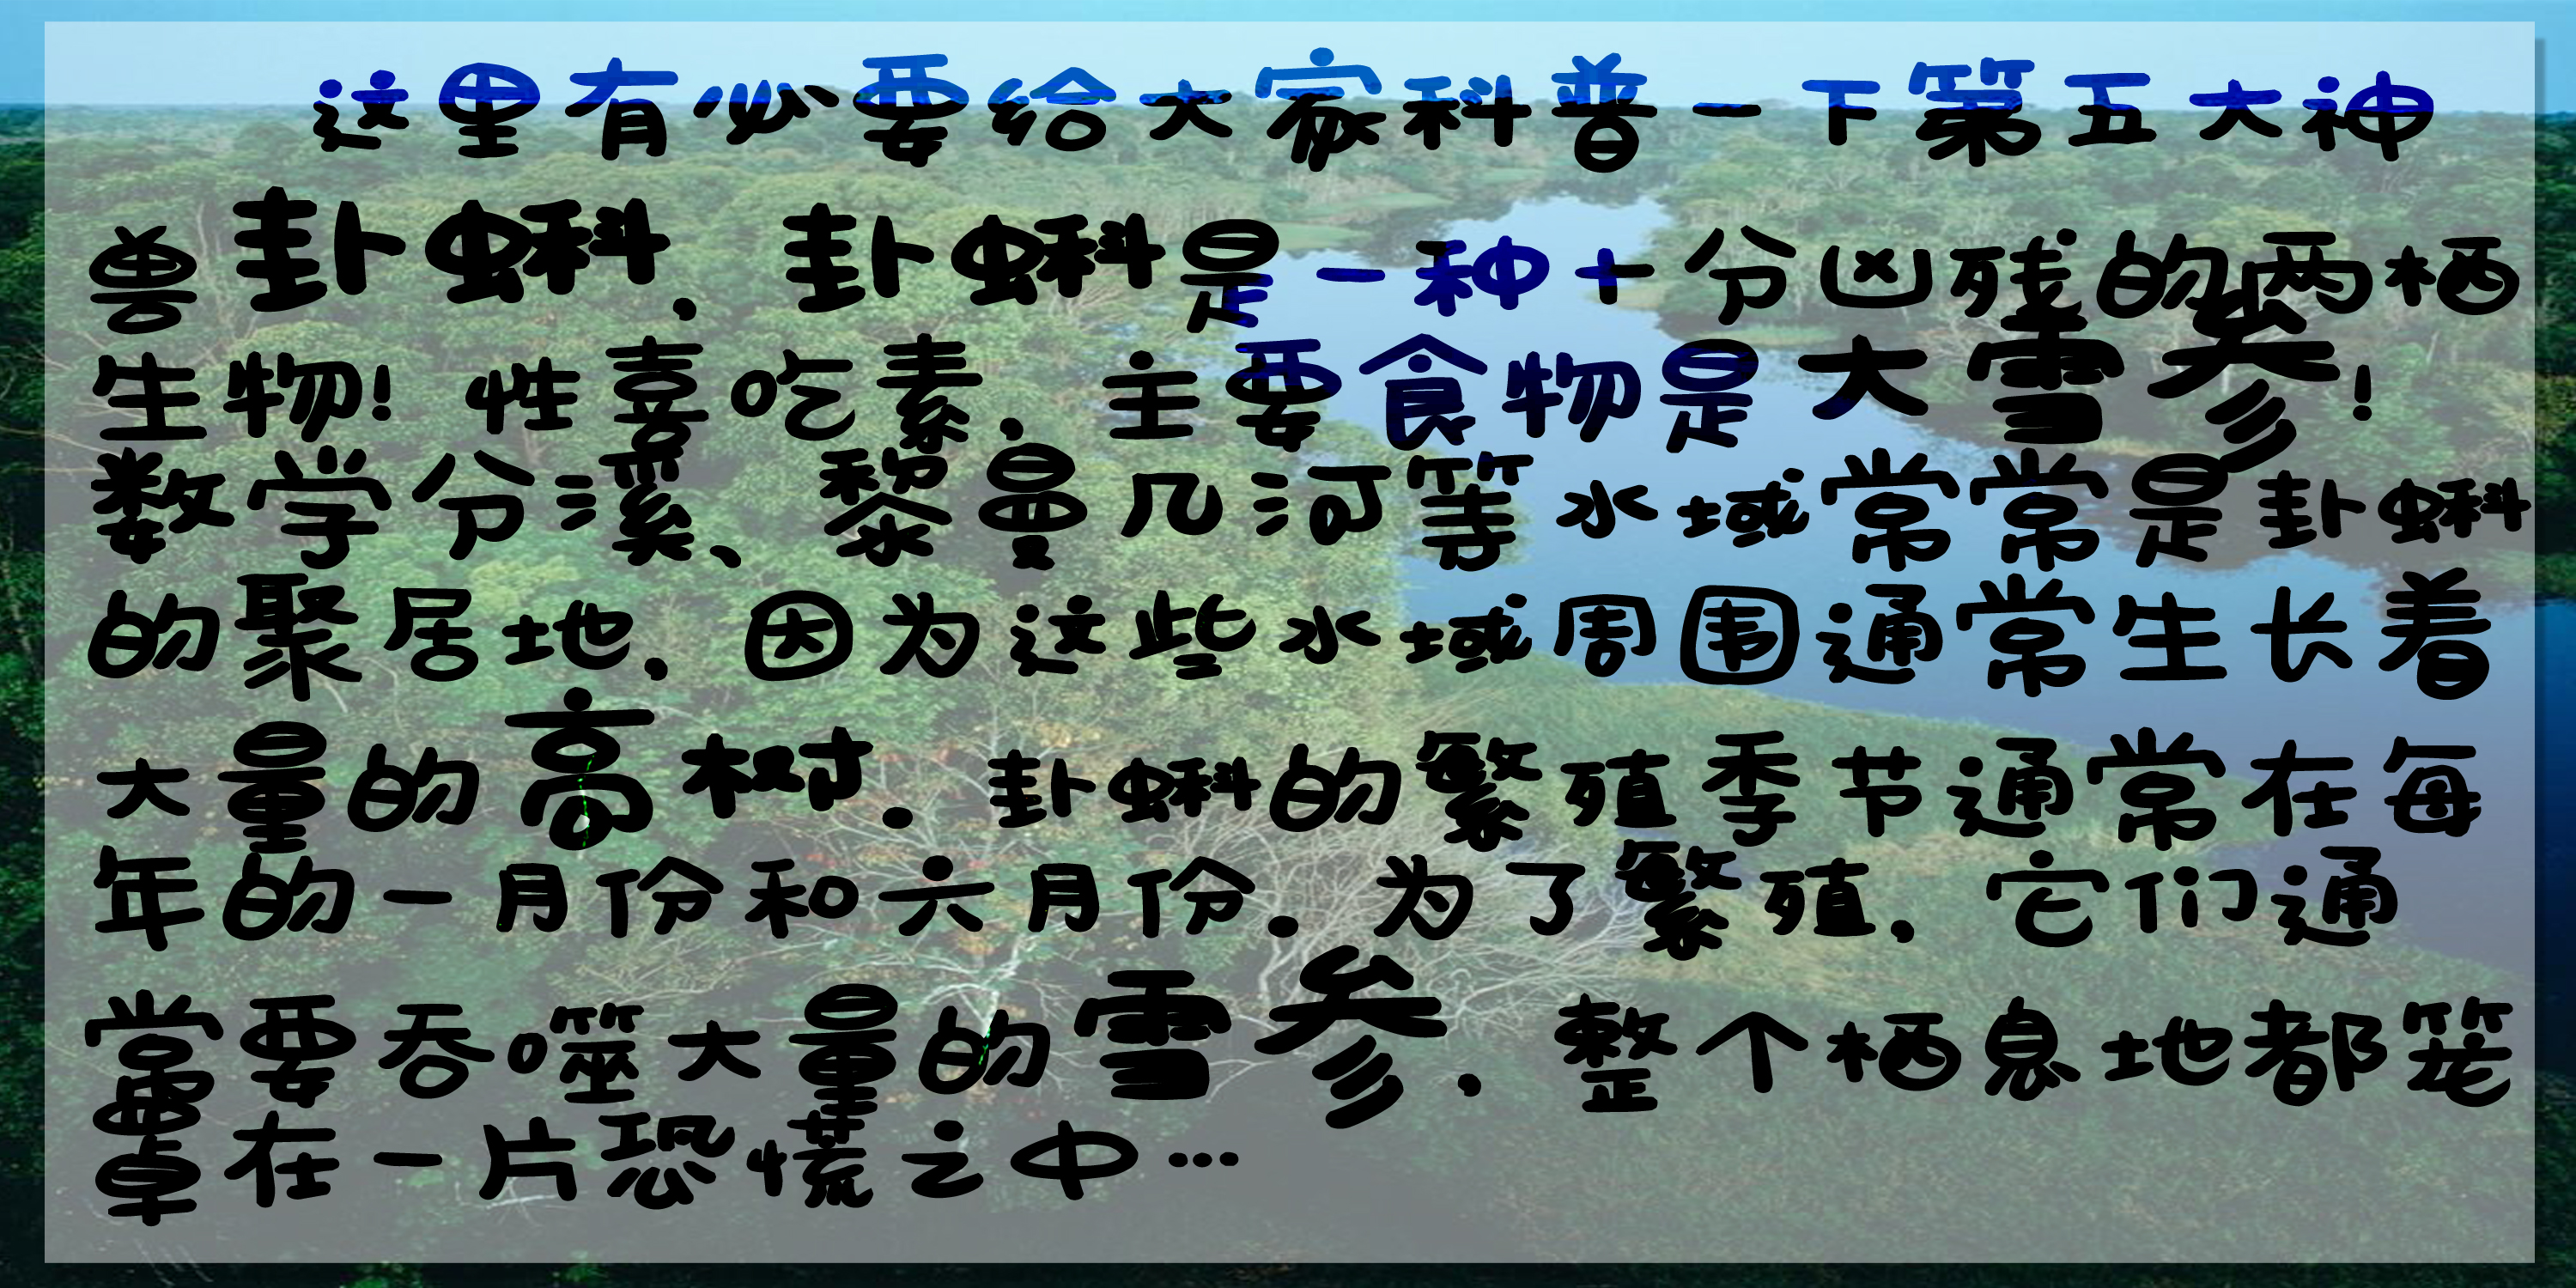 这里有必要给大家科普一下第五大神
兽卦蝌，卦蝌是一种十分凶残的两栖
生物！性喜吃素，主要食物是大雪参！
数学分溪、黎曼几河等水域常常是卦蝌
的聚居地，因为这些水域周围通常生长着
大量的高树。卦蝌的繁殖季节通常在每
年的一月份和六月份。为了繁殖，它们通
常要吞噬大量的雪参，整个栖息地都笼
罩在一片恐慌之中…